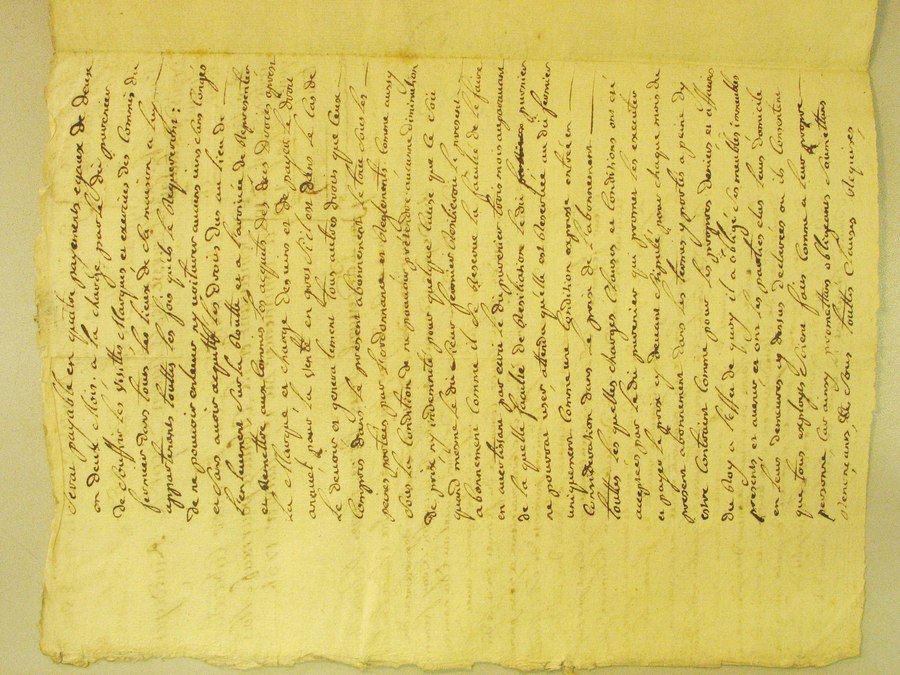 sera payable en quatre payements egaux de deux
en deux mois, a la charge par le dit preneur
de souffrir les visittes Marques et exercices des Commis du
fermier dans tous les lieux de sa maison a luy
appartenants touttes les fois qu'ils le Requereront:
de ne pouvoir enlever ny voiturer aucuns vins sans Congés
et sans avoir acquitté les droits deus au lieu de
l'enlevement sur la Routte et a l'arrivée de Representer
et Remettre aux Commis les acquits des dits droits apres
la Marque et charge des vins et de payer le droit
annuel pour la vente en gros s'il est dans le cas de
Le devoir et generalement tous autres droits que Ceux
Compris dans le present abonnement Le tout sous les
peines portées par l'ordonnance et Reglements Comme aussy
sous la Condition de ne pouvoir prétendre aucune diminution
de prix ny indemnité pour quelque Cause que Ce soit
quand mesme le dit sieur fermier Resilieroit le present
abonnement Comme il se Reserve la faculté de le faire
en avertissant par ecrit le dit preneur trois mois auparavant
de la quelle faculté de Resiliation le dit preneur
ne pouvoir user attendu quelle est Reservée au dit fermier
uniquement Comme une Condition expresse entrée en
Consideration dans le prix de l'abonnement
touttes les quelles charges Clauses et Conditions ont eté
acceptées par le dit preneur qui promet les executer
et payer le prix cy devant stipulé pour chaque mois du
present abonnement dans les termes y portés a peine dy
estre Contraint Comme pour les propres deniers et affaires
du Roy a l'effet de quoy il a obligé ses meubles immeubles
presents et avenir et ont les parties elus leurs domicile
en leurs demeures cy dessus declarées ou ils Consentent
que tous exploits soient faits Comme a leur propre
personne Car ainsy promettans obligeans soumettans
Renonceans et sous touttes Clauses Requises